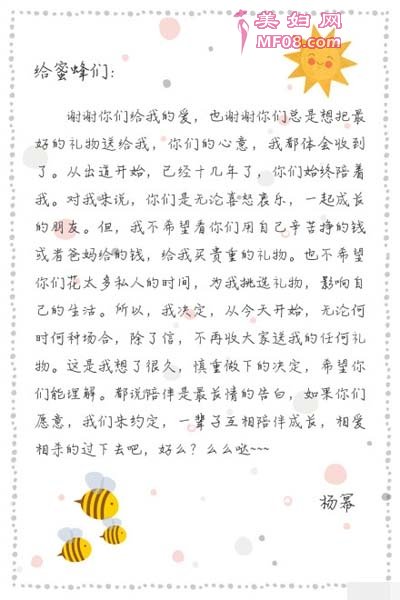 美妇网
MF08.com
给蜜蜂们：
谢谢你们给我的爱，也谢谢你们总是想把最
好的礼物送给我，你们的心意，我都体会收到
了。从出道开始，已经十几年了，你们始终陪着
我。对我来说，你们是无论喜怒哀乐，一起成长
的朋友。但，我不希望看你们用自己辛苦挣的钱
或者爸妈给的钱，给我买贵重的礼物。也不希望
你们花太多私人的时间，为我挑选礼物，影响自
己的生活。所以，我决定，从今天开始，无论何
时何种场合，除了信，不再收大家送我的任何礼
物。这是我想了很久，慎重做下的决定，希望你
们能理解。都说陪伴是最长情的告白，如果你们
愿意，我们来约定，一辈子互相陪伴成长，相爱
相杀的过下去吧，好么？么么哒~~~
杨幂